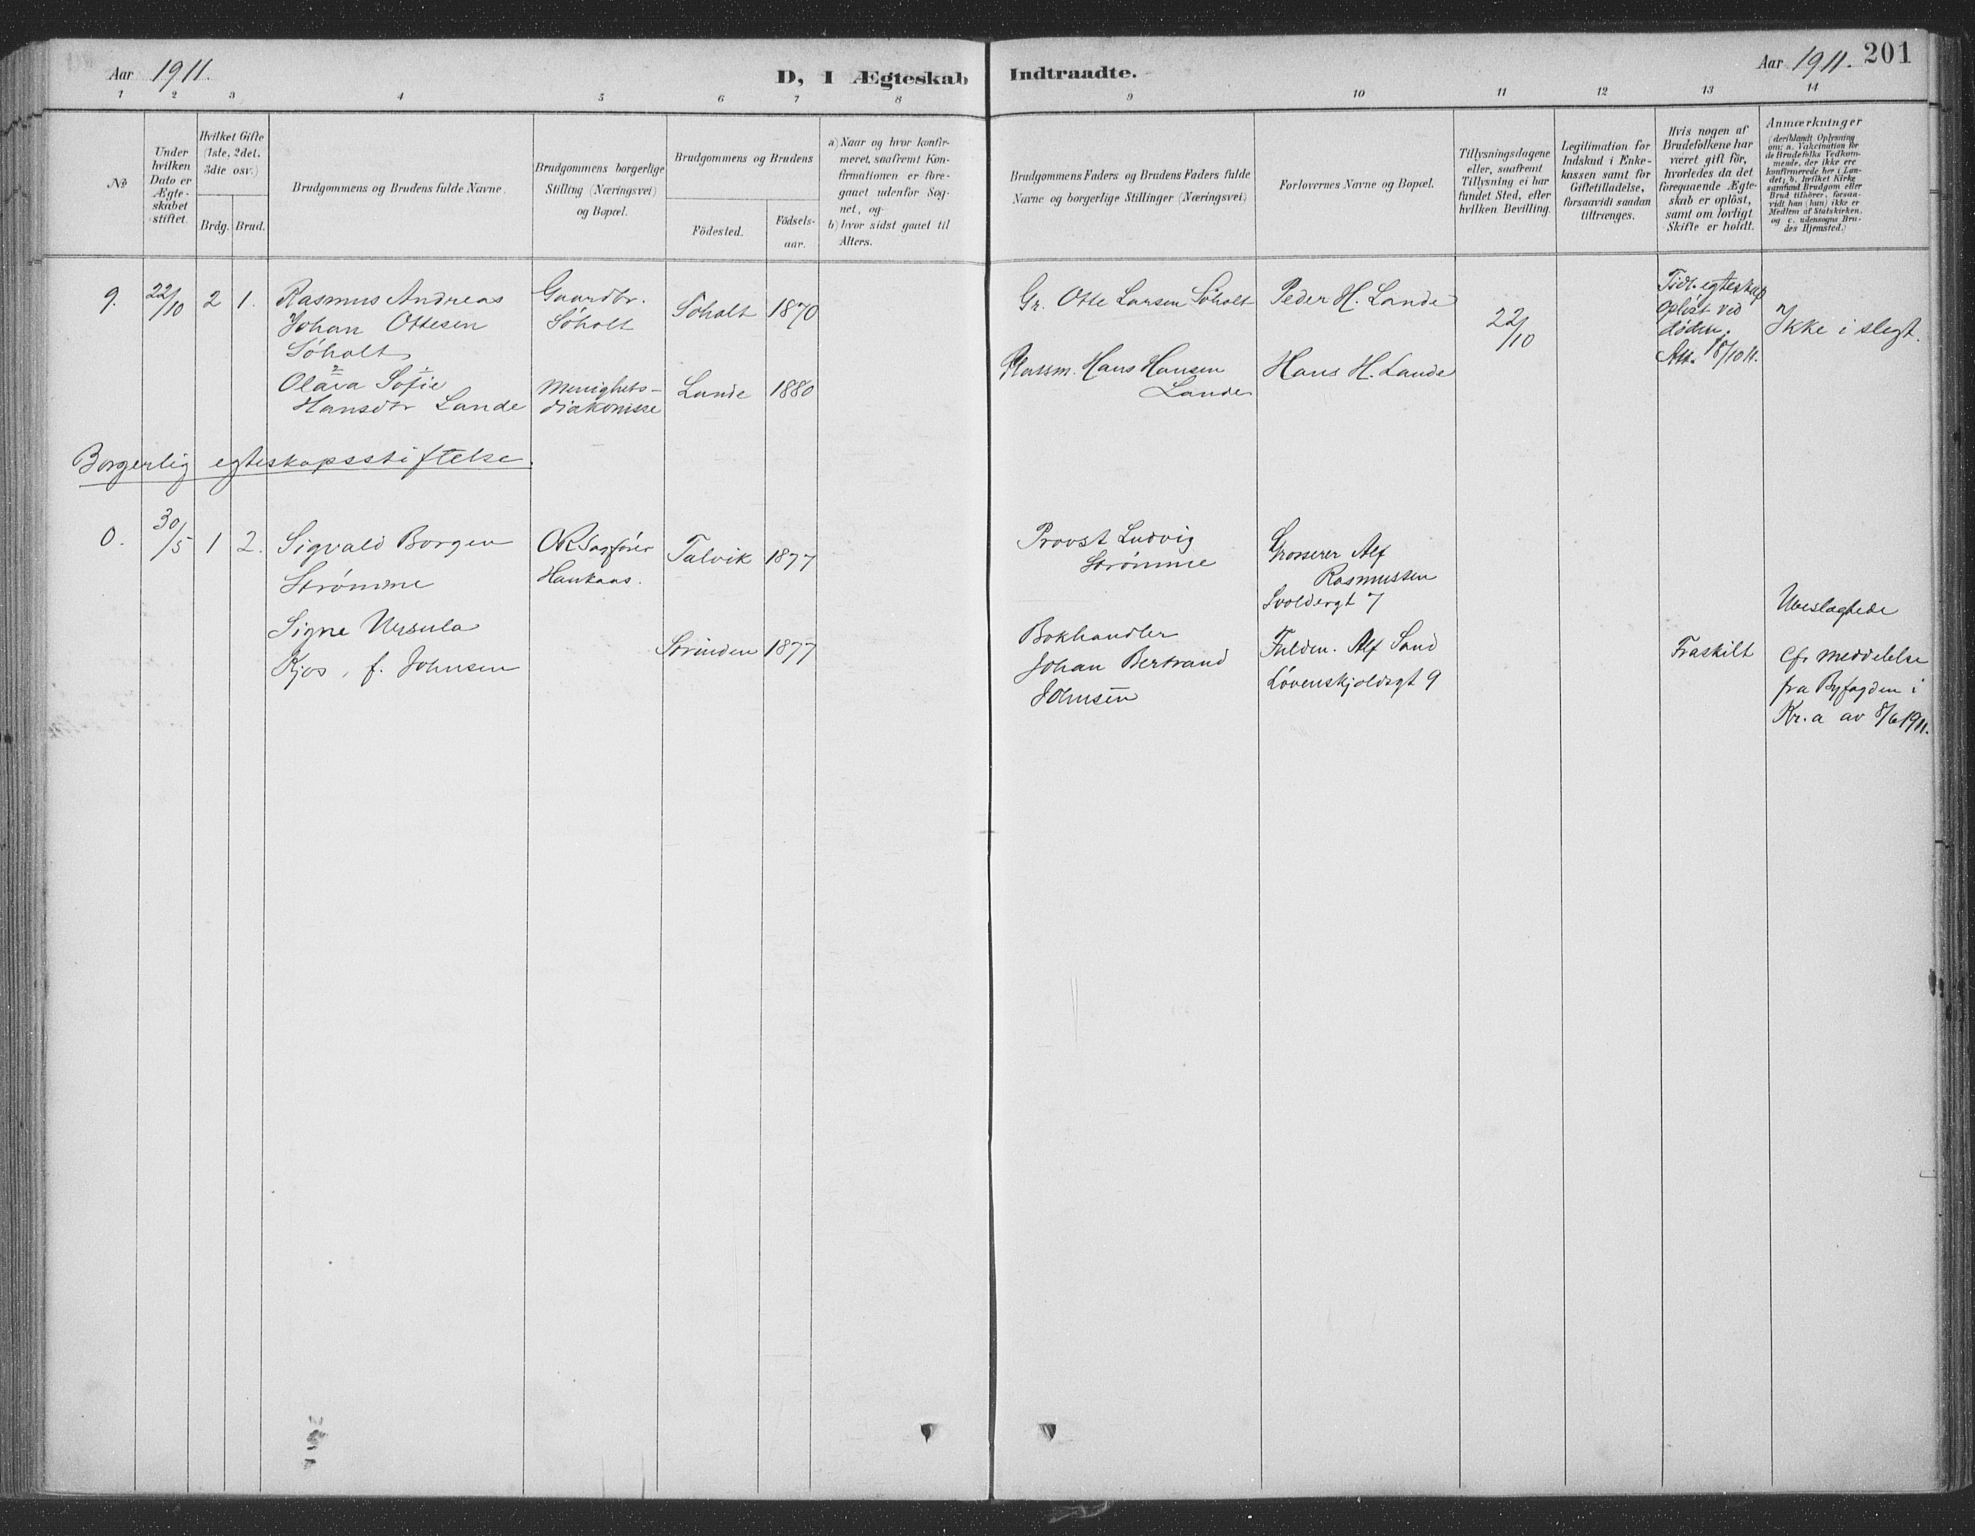 Aar 1911.
D, I Ægteskab Indtraadte.
Aar 1911. 201
1 2 3 4 5 6 7 8 9 10 11 12 13 14
No
Under hvilken Dato er Ægte-skabet stiftet.
Hvilket Gifte (1ste, 2det, 3die osv.)
Brdg. Brud.
Brudgommens og Brudens fulde Navne.
Brudgommens borgerlige Stilling (Næringsvei) og Bopæl.
Brudgommens og Brudens
Födested.
Födsels-aar.
a) Naar og hvor konfir-meret, saafremt Kon-firmationen er fore-gaaet udenfor Sog-net, og
b) hvor sidst gaaet til Alters.
Brudgommens Faders og Brudens Faders fulde Navne og borgerlige Stillinger (Næringsvei)
Forlovernes Navne og Bopæl.
Tillysningsdagene eller, saafremt Tillysning ei har fundet Sted, efter hvilken Bevilling.
Legitimation for Indskud i Enke-kassen samt for Giftetilladelse, forsaavidt saadan tiltrænges.
Hvis nogen af Brudefolkene har været gift för, hvorledes da det foregaaende Ægte-skab er oplöst, samt om lovligt Skifte er holdt.
Anmærkninger
(deriblandt Oplysning om: a. Vaksination for de Brudefolks Vedkom-mende, der ikke ere konfirmerede her i Lan-det; b. hvilket Kirke-samfund Brudgom eller Brud tilhörer, forsaa-vidt han (hun) ikke er Medlem af Statskirken, og c. udensogns Bru-des Hjemsted.)
9. 22/10 2 1.
Rasmus Andreas
Johan Ottesen
Søholt
Gaardbr.
Søholt
Søholt 1870
Gr. Otte Larsen Søholt
Peder H. Lande
22/10
Tidl. egteskap
opløst ved
døden.
Att. 18/10 11.
Ikke i slegt.
Olava Sofie
Hansdtr Lande
Menighets-
diakonisse
Lande 1880
Plassm. Hans Hansen
Lande
Hans H. Lande
Borgerlig egteskapsstiftelse.
0. 30/5 1 2.
Sigvald Borgen
Strømme
OR Sagfører
Haukaas.
Talvik 1877
Provst Ludvig
Strømme
Grosserer Alf
Rasmussen
Svoldergt 7
Ubeslægtede
Signe Ursula
Kjos, f. Johnsen
Strinden 1877
Bokhandler
Johan Bertrand
Johnsen
Fuldm. Alf Sand
Løvenskjoldsgt 9
Fraskilt
Cfr meddelelse
fra Byfogden i
Kr.a av 8/6 1911.